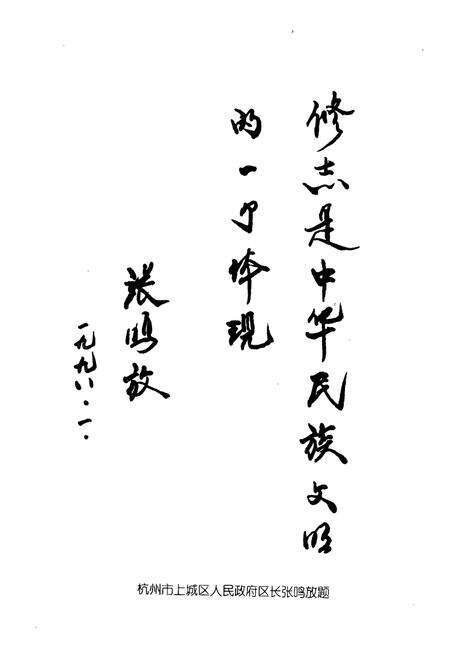 修志是中华民族文明
的一个体现
张鸣放
一九九八．一．
杭州市上城区人民政府区长张鸣放题